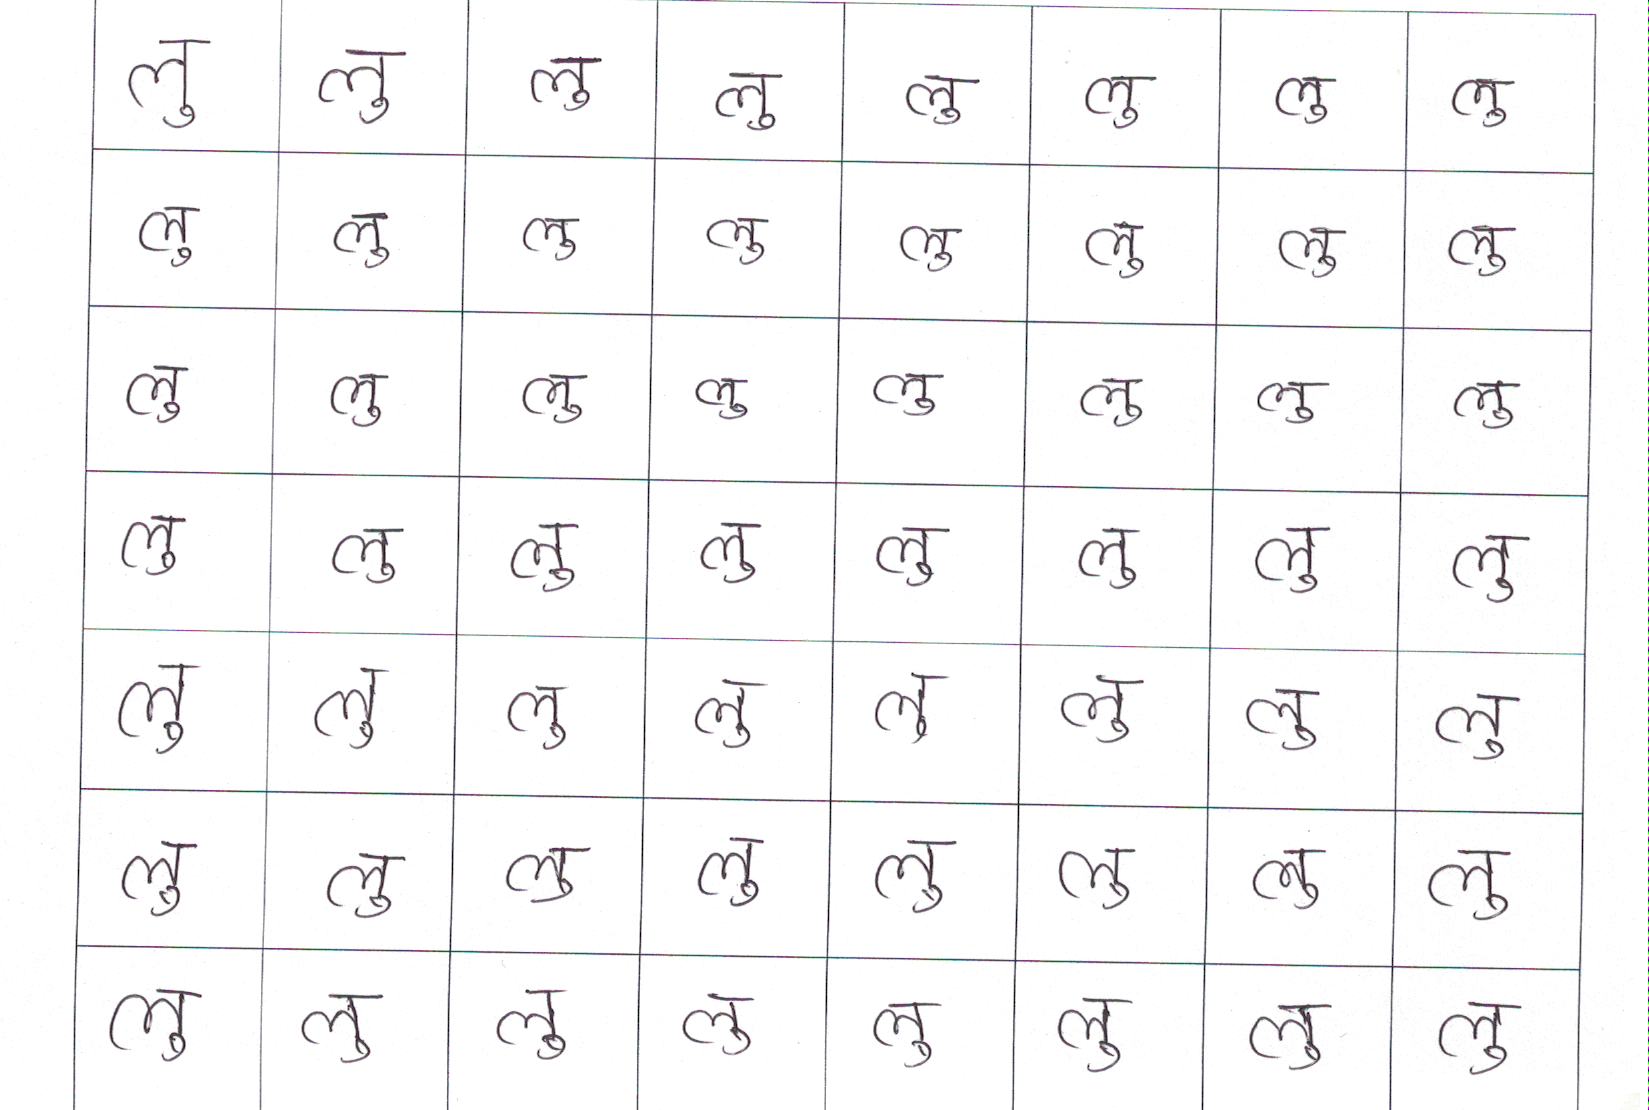 लु लु लु लु लु लु लु लु
लु लु लु लु लु लु लु लु
लु लु लु लु लु लु लु लु
लु लु लु लु लु लु लु लु
लु लु लु लु लु लु लु लु
लु लु लु लु लु लु लु लु
लु लु लु लु लु लु लु लु